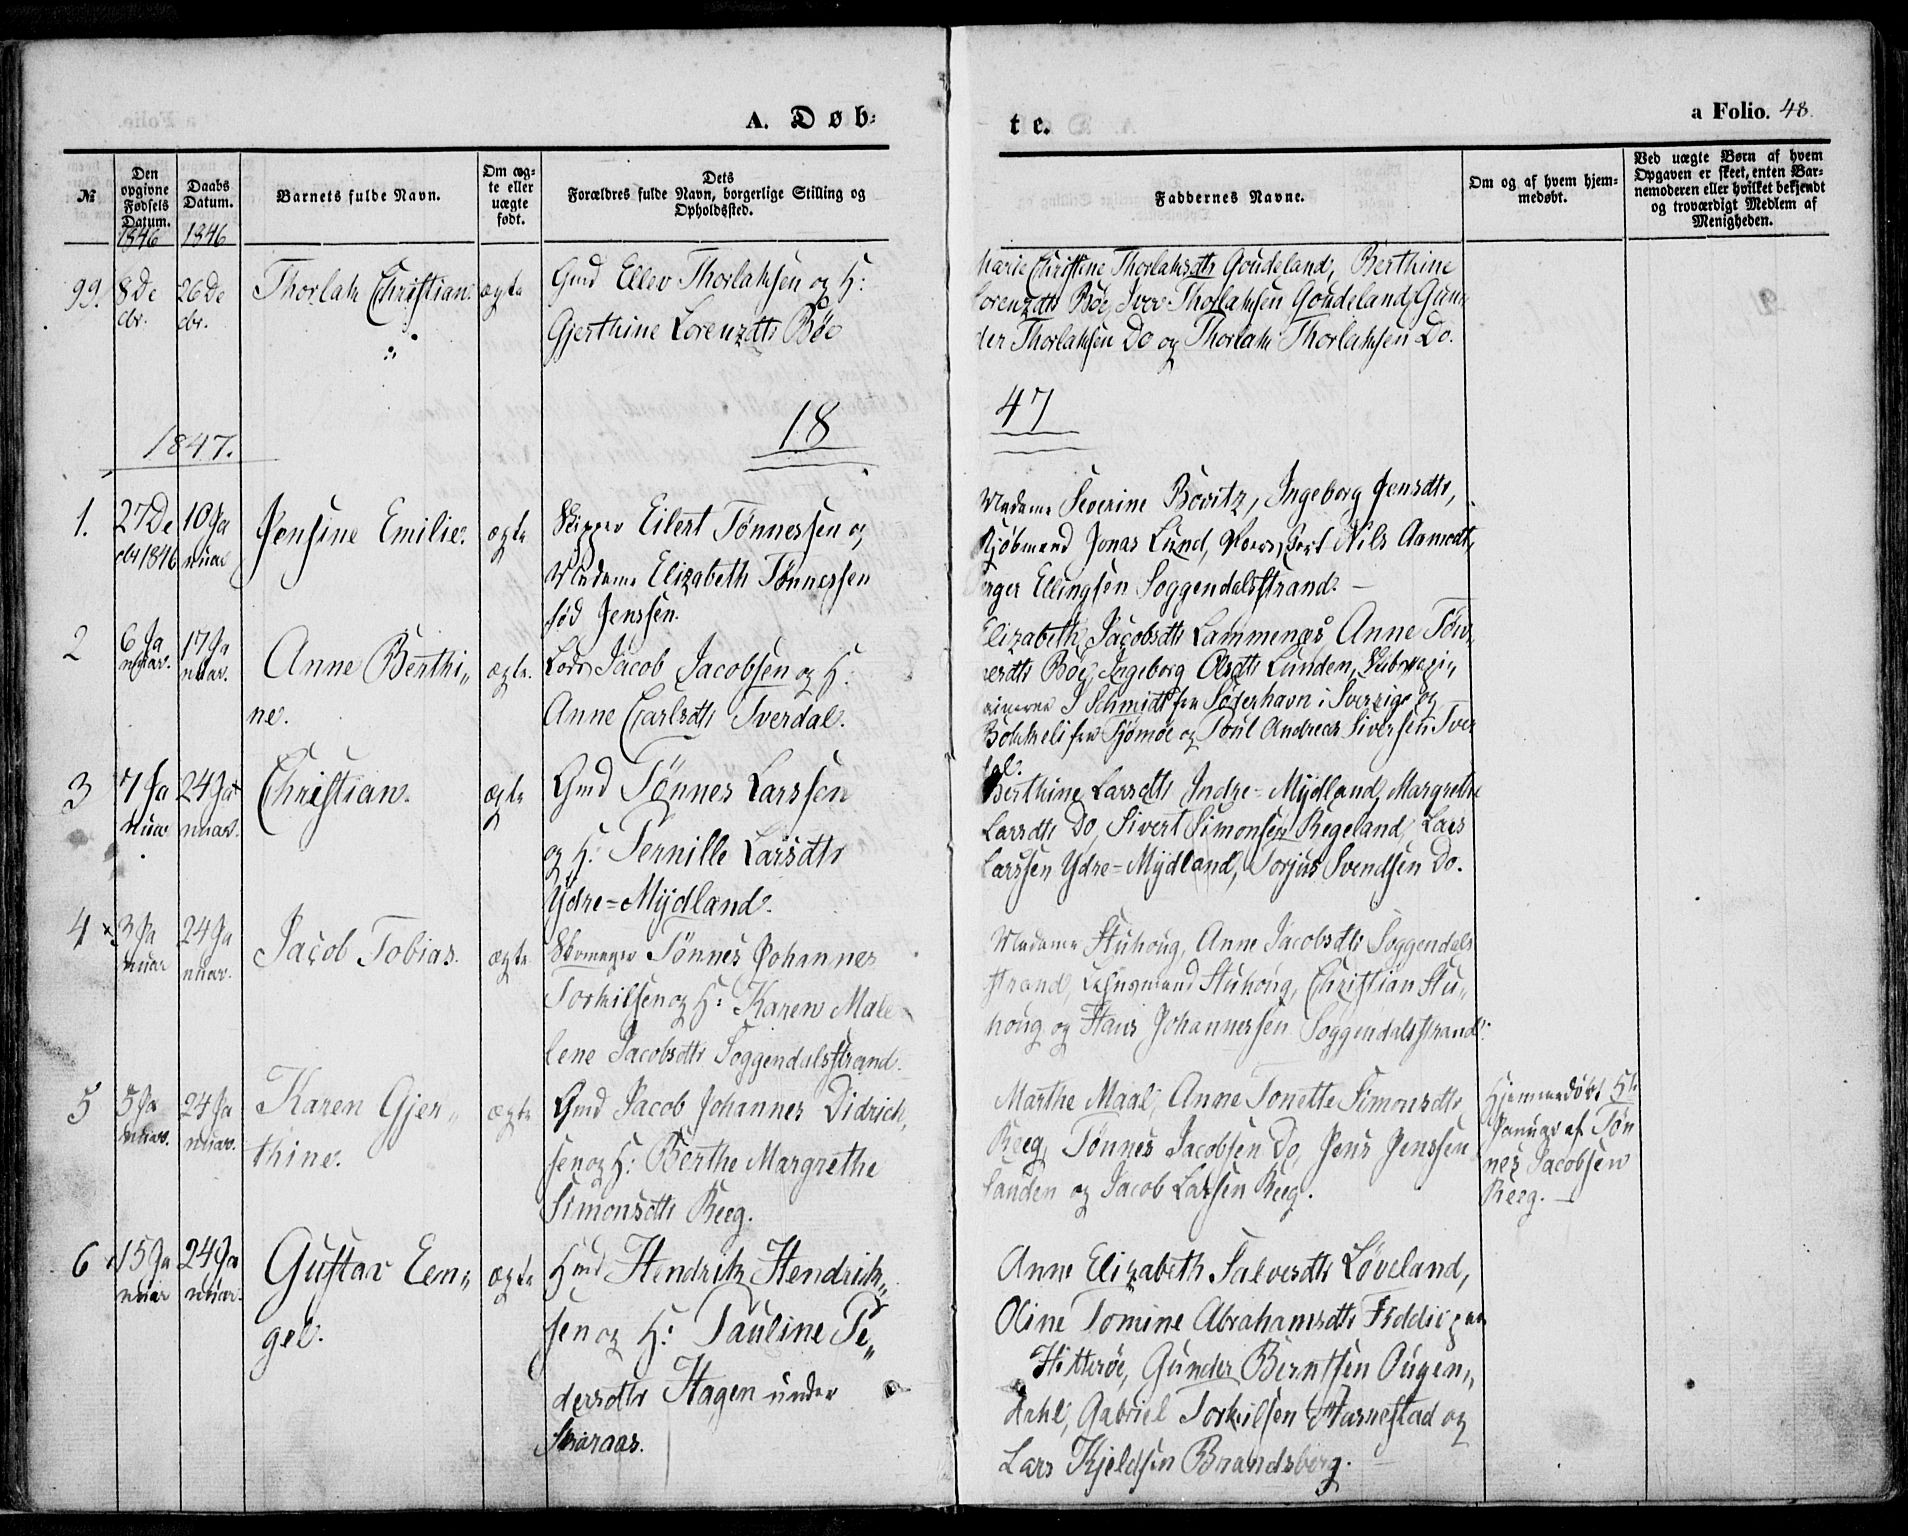 A. Døb-
te.
a Folio. 48.
No
Den opgivne Fødsels Datum.
Daabs Datum.
Barnets fulde Navn.
Om ægte eller uægte født.
Dets Forældres fulde Navn, borgerlige Stilling og Opholdssted.
Faddernes Navne.
Om og af hvem hjemmedøbt.
Ved uægte Børn af hvem Opgaven er skeet, enten Barnemoderen eller hvilket bekjendt og troværdigt Medlem af Menigheden.
1846
1846
99.
8 De
cbr.
26 De
cbr.
Thorlak Christian.
ægte
Gmd Ellev Thorlaksen og H:
Gjerthine Lorenzdtr Bøe
Marie Christine Thorlaksdtr Goudeland, Berthine
Lorenzdtr Bøe, Iver Thorlaksen Goudeland, Gun
der Thorlaksen Do og Thorlak Thorlaksen Do.
1847.
18
47
1.
27 De
cbr 1846
10 Ja
nuar
Jensine Emilie.
ægte
Skipper Eilert Tønnessen og
Madame Elizabeth Tønnessen
fød Jenssen.
Madame Severine Bovitz, Ingeborg Jensdtr,
Kjøbmand Jonas Lund, Nils Aamodt,
Ellingsen Soggendalsstrand.
2
6 Ja
nuar.
17 Ja
nuar.
Anne Berthi„
ne.
ægte.
Lods Jacob Jacobsen og H:
Anne Carlsdtr Tverdal.
Elizabeth Jacobsdtr Lammenæs Anne Tøn
nesdtr Bøe, Ingeborg Olsdtr Lunden,
S Schmidt fra Søderhavn i Sverrige og
fra og Poul Andreas Siversen Tver
dal.
3
7 Ja
nuar
24 Ja
nuar.
Christian.
ægte
Gmd Tønnes Larssen
og H: Pernille Larsdtr
Ydre=Mydland.
Berthine Larsdtr Indre=Mydland, Margrethe
Larsdtr Do, Sivert Simonsen Regeland, Lars
Larssen Ydre=Mydland, Torjus Svendsen Do.
4
3 Ja
nuar
24 Ja
nuar.
Jacob Tobias.
ægte
Skomager Tønnes Johannes
Torkilsen og H: Karen Mal
lene Jacobsdtr Soggendalsstrand.
Madame Stuhoug, Anne Jacobsdtr Soggendals
strand, Lehnsmand Stuhoug, Christian Stu„
houg og Hans Johannessen Soggendalsstrand.
5
5 Ja
nuar.
24 Ja
nuar.
Karen Gjer„
thine.
ægte
Gmd Jacob Johannes Didrich,
sen og H: Berthe Margrethe
Simonsdtr Reeg.
Marthe Maal, Anne Tonette Simonsdtr
Reeg, Tønnes Jacobsen Do, Jens Jenssen
Sanden og Jacob Larsen Reeg.
Hjemmedøbt 5te
Januar af Tøn
nes Jacobsen
Reeg.
6
15 Ja
nuar
24 Ja
nuar.
Gustav Een„
gel.
ægte
Hmd Hendrik Hendrik„
sen og H: Pauline Pe„
dersdtr Hagen under
Skaraas.
Anne Elizabeth Salvesdtr Løveland,
Oline Tomine Abrahamsdtr Fidde paa
Hitterøe, Gunder Berntsen Ougen„
dahl, Gabriel Torkilsen Stornestad og
Lars Kjeldsen Brandsberg.